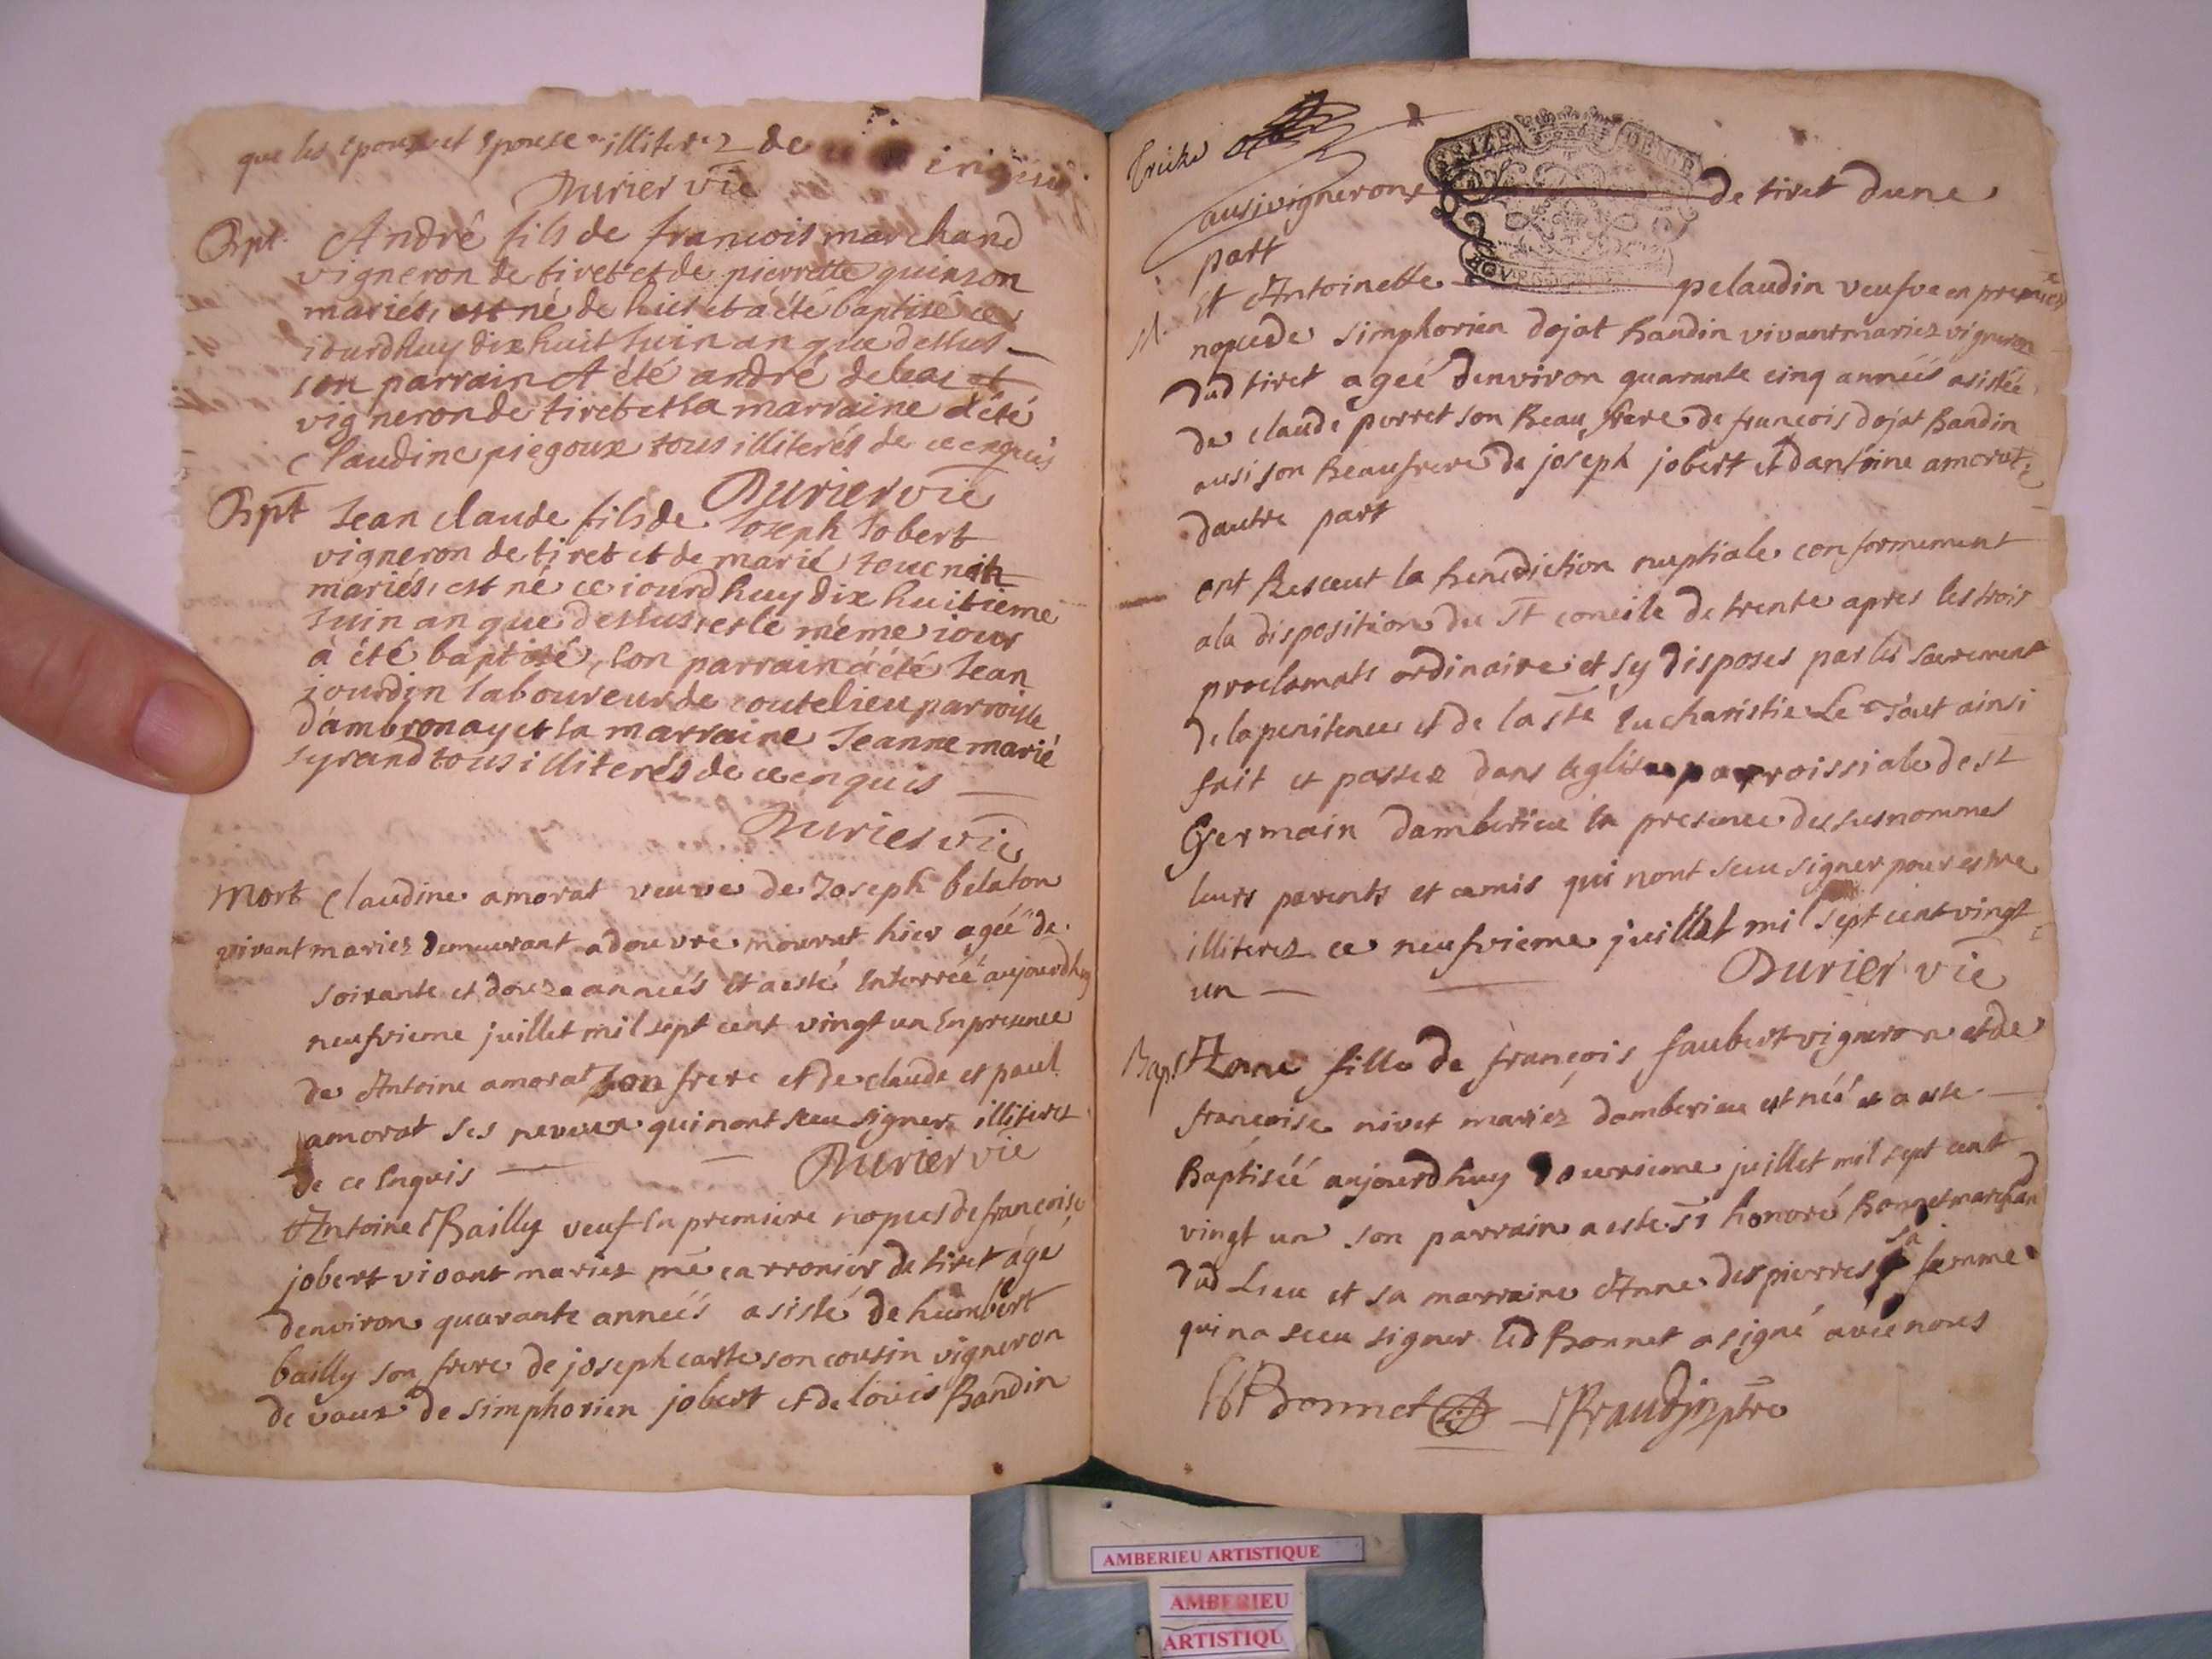 que les epoux et epouse illiterez de
Durier vic
Bpt. André fils de francois marchand
vigneron de tiret et de pierrette quinson
mariés, est né de hier et a été baptisé ce
iourdhuy dix huit Iuin an que dessus
son parrain A été andré
vigneron de tiret et la marraine a été
Claudine piegoux tous illiterés de ce enquis
Durier vic
Bpt Iean claude fils de Ioseph Iobert
vigneron de tiret et de marie
mariés, est né ce iourdhuy dix huitieme
Iuin an que dessus, et le même iour
à été baptisé, son parrain a été Iean
jourdin laboureur de coutelieu parroisse
d'ambronay et la marraine Ieanne marie
syrand tous illiterés de ce enquis
Durier vic
Mort Claudine amorat veuve de Joseph belaton
vivant mariez demeurant a douvre mourut hier agéé de
soixante et douze annéés et a esté Enterréé aujourdhuy
neufvieme juillet mil sept cent vingt un En presence
de Antoine amorat son frere et de claude et paul
amorat ses neveux qui nont sceu signer illiterez
de ce Enquis
Durier vic
Antoine Bailly veuf En premiere nopces de francoise
jobert vivant mariez me carronier de tiret agé
denviron quarante annéés asisté de humbert
bailly son frere de joseph carte son cousin vigneron
de vaux de simphorien jobert et de louis Bandin
ausi vignerons de tiret dune
part
M. Et Antoinette pelaudin veufve en premiere
nopce de simphorien dojat bandin vivant mariez vigneron
dud tiret agéé denviron quarante cinq annéés asistéé
de claude perret son beau frere de francois dojat Bandin
ausi son beaufrere de joseph jobert et dantoine amorat
dautre part
ont Resceut la benediction nuptiale conformement
ala disposition du St concile de trente apres les trois
proclamats ordinaire et sy disposes par les sacrement
de la penitence et de la Ste Eucharistie Le Tout ainsi
fait et passez dans leglise parroissiale de st
Germain damberieu En presence des susnommes
leurs parents et amis qui nont sceu signer pour estre
illiterez ce neufvieme juillet mil sept cent vingt
un
Durier vic
Bapt Anne fille de françois faubert vigneron et de
francoise nivet mariez damberieu est néé et a este
Baptiséé aujourdhuy juillet mil sept cent
vingt un son parrain a este sr honoré Bonnet marchand
dud Lieu et sa marraine Anne despierres sa femme
qui na sceu signer led Bonnet a signé avec nous
Bonnet Braudin ptre
AMBERIEU ARTISTIQUE
AMBERIEU
ARTISTIQU